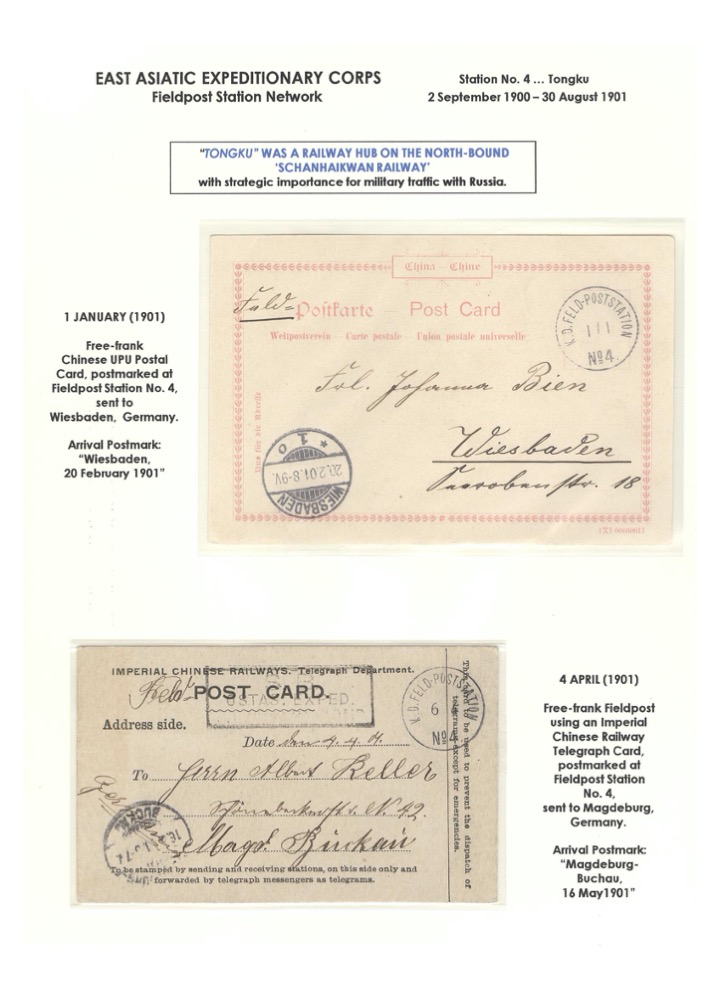 EAST ASIATIC EXPEDITIONARY CORPS
Fieldpost Station Network
Station No. 4 ... Tongku
2 September 1900 – 30 August 1901
"TONGKU" WAS A RAILWAY HUB ON THE NORTH-BOUND
'SCHANHAIKWAN RAILWAY'
with strategic importance for military traffic with Russia.
1 JANUARY (1901)
Free-frank
Chinese UPU Postal
Card, postmarked at
Fieldpost Station No. 4,
sent to
Wiesbaden, Germany.
Arrival Postmark:
"Wiesbaden,
20 February 1901"
China – Chine
Feld= Postkarte Post Card
Weltpostverein – Carte postale – Union postale universelle
K.D. FELD-POSTSTATION
1 1 1
No 4.
Frl. Johanna Bien
Wiesbaden
Seerobenstr. 18
Nur für die Adresse
* 1 o
20.2.01.8-9V.
WIESBADEN
IMPERIAL CHINESE RAILWAYS. Telegraph Department.
Feld- POST CARD.
OSTAS. EXPED.
K.D. FELD-POSTSTATION
6
No 4
Address side.
Date den 4.4.01.
To Herrn Albert Keller
N. 42.
Magd. Buckau
To be stamped by sending and receiving stations, on this side only and
forwarded by telegraph messengers as telegrams.
This card to be used to prevent the dispatch of
telegrams except for emergencies.
4 APRIL (1901)
Free-frank Fieldpost
using an Imperial
Chinese Railway
Telegraph Card,
postmarked at
Fieldpost Station
No. 4,
sent to Magdeburg,
Germany.
Arrival Postmark:
"Magdeburg-
Buchau,
16 May1901"